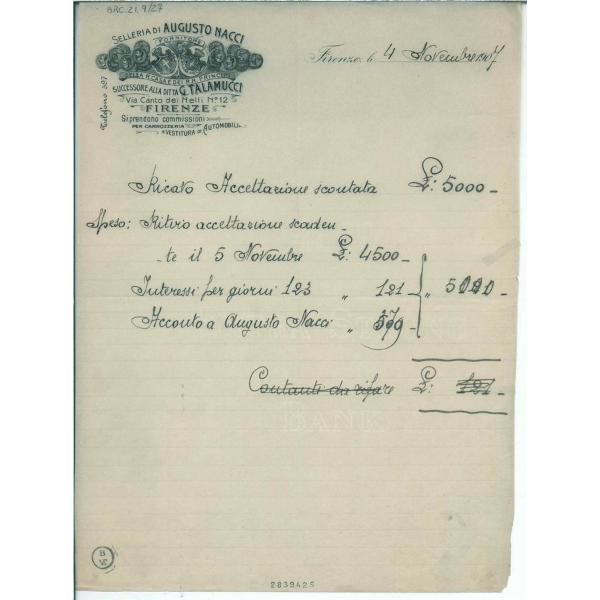 BRC.21.9/27
SELLERIA DI AUGUSTO NACCI
FORNITORE
SUCCESSORE ALLA DITTA G. TALAMUCCI
Via Canto dei Nelli No. 12
FIRENZE
Si prendono commissioni
PER CARROZZERIA
E VESTITURA DI AUTOMOBILI
Telefono
Firenze, li 4 Novembre 1907
Ricavo Accettazione scontata £: 5000-
Speso: Ritiro accettazione scaden-
-te il 5 Novembre £: 4500-
Interessi per giorni 123 " 121- " 
Acconto a Augusto Nacci " 379-
Contanti da rifare £: 121-
BANK
2839425